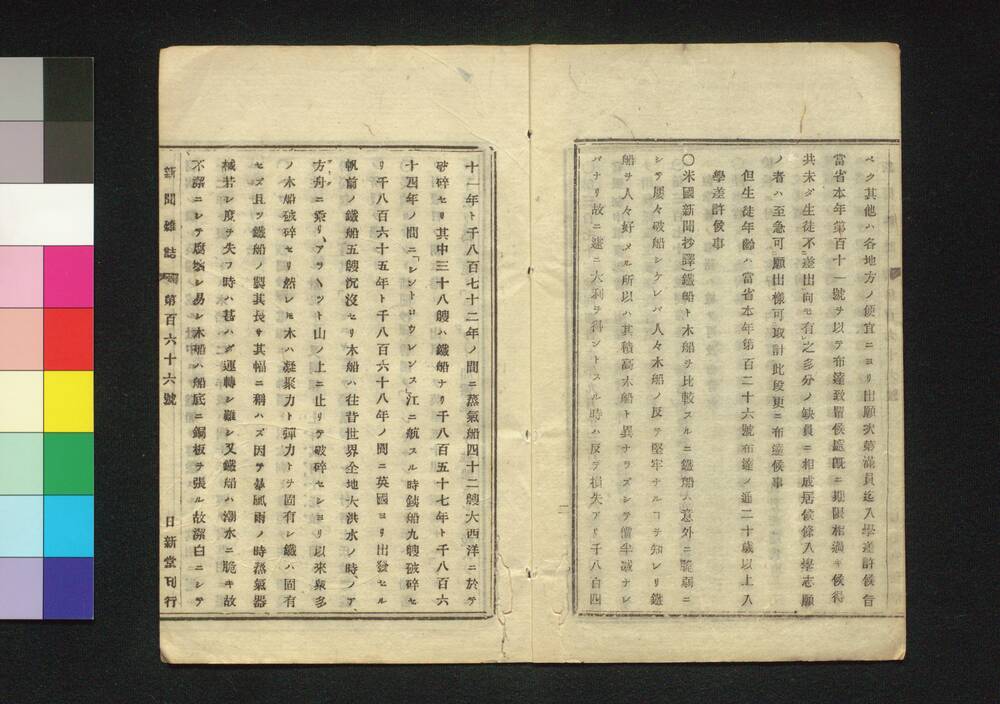 ベク其他ハ各地方ノ便宜ニヨリ出願次第滿員迄入學差許候旨
當省本年第百十一號ヲ以テ布達致置候處既ニ期限相満キ候得
共未ダ生徒不差出向モ有之多分ノ缺員ニ相成居候條入學志願
ノ者ハ至急可願出樣可取計此段更ニ布達候事
但生徒年齡ハ當省本年第百二十六號布達ノ通二十歲以上入
學差許候事
〇米國新聞抄譯鐵船ト木船ヲ比較スルニ鐵船ハ意外ニ脆弱ニ
シテ屢々破船シケレバ人々木船ノ反テ堅牢ナルコヲ知レリ鐵
船ヲ人々好メル所以ハ其積高木船ト異ナラズシテ價半減ナレ
バナリ故ニ速ニ大利ヲ得ントスル時ハ反テ損失アリ千八百四
十一年ト千八百七十二年ノ間ニ蒸氣船四十二艘大西洋ニ於テ
破碎セリ其中三十八艘ハ鐵船ナリ千八百五十七年ト千八百六
十四年ノ間ニ「レントロウレンス」江ニ航スル時鐵船九艘破碎セ
リ千八百六十五年ト千八百六十八年ノ間ニ英國ヨリ出發セル
帆前ノ鐵船五艘沉沒セリ木船ハ往昔世界全地大洪水ノ時ノア
方舟ニ乘リアラヽツト山ノ上ニ止リテ破碎セシヨリ以來衆多
ノ木船破碎セリ然レ𪜈木ハ凝聚力ト彈力トヲ固有シ鐵ハ固有
セズ且ツ鐵船ノ製其長サ其幅ニ稱ハズ因テ暴風雨ノ時蒸氣器
械若シ度ヲ失フ時ハ甚ハダ運轉シ難シ又鐵船ハ潮水ニ脆キ故
不潔ニシテ腐敗シ易シ木船ハ船底ニ銅板ヲ張ル故潔白ニシテ
新聞雜誌 第百六十六號 日新堂刊行
二